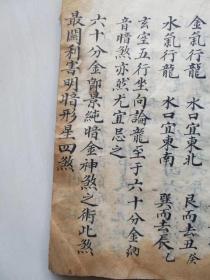 金氣行龍　水口宜東北　艮而去丑癸
水氣行龍　水口宜東南　巽而去辰乙
玄空五行坐向論龍至于六十分金納
音暗煞亦然尤宜忌之
六十分金郭景純暗金神煞之術此煞
最關利害明暗形星四煞